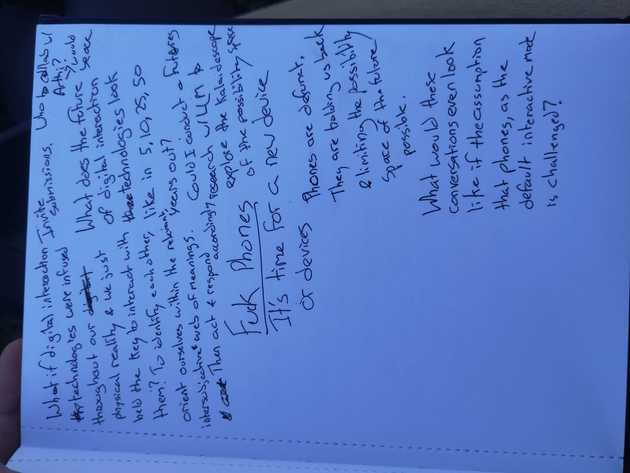 What if digital interaction
technologies were infused
throughout our
physical reality & we just
held the key to interact with
them? To identify each other,
orient ourselves within the relevant
intersubjective webs of meanings.
Then act & respond accordingly
Invite
submissions.
Who to collab w/
Would
What does the future
of digital interaction
technologies look
like in 5, 10, 25, 50
years out?
Could I conduct a futures
research w/ LLM to
explore the kaleidoscope
of the possibility space
Fuck Phones
It's time for a new device
or devices
Phones are defunct.
They are holding us back
& limiting the possibility
space of the future
possible.
What would these
conversations even look
like if the assumption
that phones, as the
default interactive
is challenged?